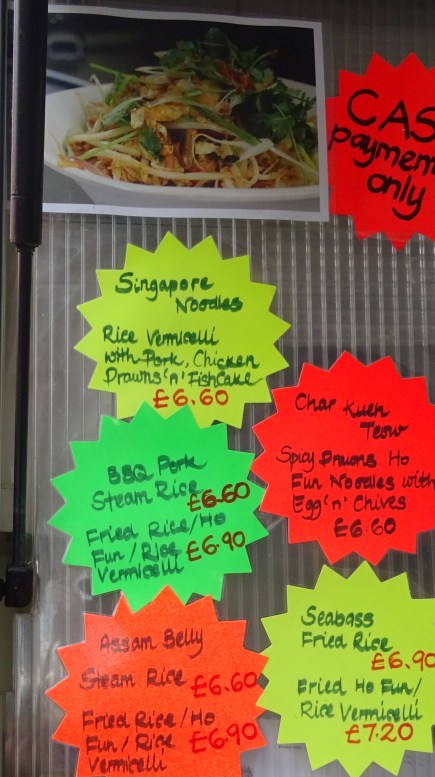 CAS
paymen
only
Singapore
Noodles
Rice Vermicelli
with Pork, Chicken
Prawns 'n' Fishcake
£6.60
Char Kueh
Teow
Spicy Prawns Ho
Fun Noodles with
Egg 'n' Chives
£6.60
BBQ Pork
Steam Rice £6.60
Fried Rice/Ho
Fun / Rice £6.90
Vermicelli
Seabass
Fried Rice
£6.90
Fried Ho Fun/
Rice Vermicelli
£7.20
Assam Belly
Steam Rice £6.60
Fried Rice/Ho
Fun / Rice £6.90
Vermicelli